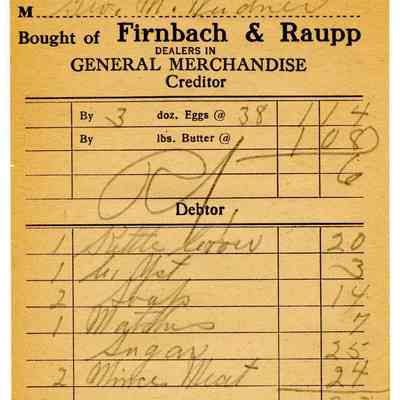 M Geo. M. Weidner
Bought of Firnbach & Raupp
DEALERS IN
GENERAL MERCHANDISE
Creditor
By 3 doz. Eggs @ 38 1 1 4
By lbs. Butter @ 1 0 8
6
Debtor
1 Kettle Cover 20
1 3
2 Soaps 14
1 Matches 7
Sugar 25
2 Mince Meat 24